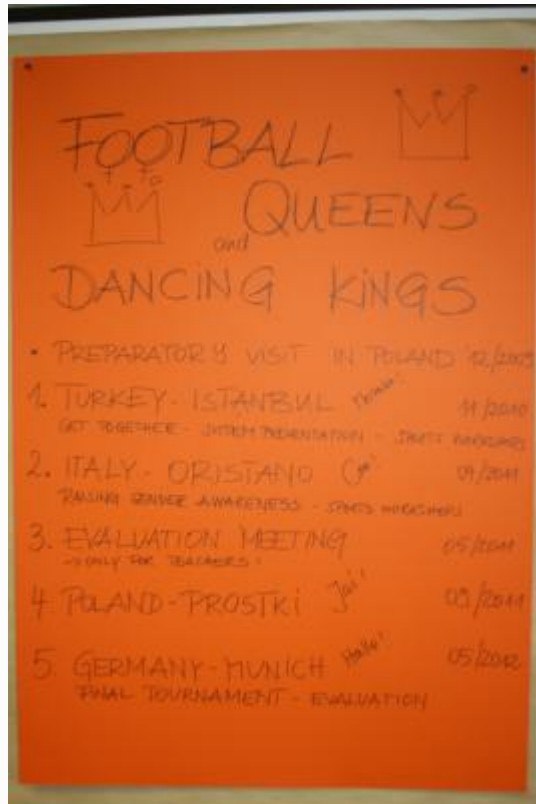 FOOTBALL
QUEENS
and
DANCING KINGS
• PREPARATORY VISIT IN POLAND 12/2009
1. TURKEY - ISTANBUL 11/2010
GET TOGETHER - SYSTEM PRESENTATION - SPORTS WORKSHOPS
2. ITALY - ORISTANO 04/2011
RAISING GENDER AWARENESS - SPORTS WORKSHOPS
3. EVALUATION MEETING 05/2011
→ ONLY FOR TEACHERS
4 POLAND - PROSTKI 09/2011
5 GERMANY - MUNICH Hallo! 05/2012
FINAL TOURNAMENT - EVALUATION